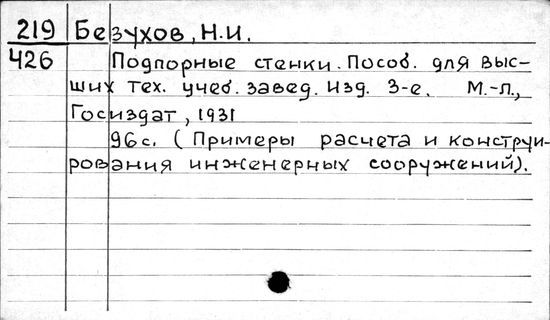 219 Безухов, Н.И.
426 Подпорные стенки. Пособ. для выс-
ших тех. учеб. завед. Изд. 3-е. М.-Л.,
Госиздат, 1931
96с. (Примеры расчета и конструи-
рования инженерных сооружений).